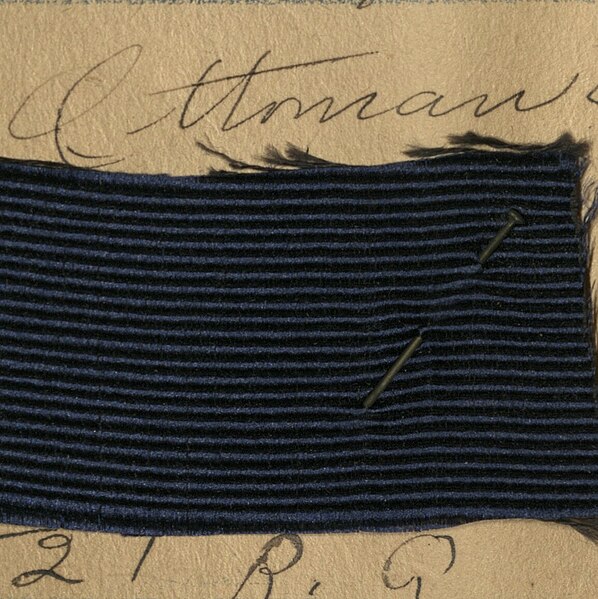 Ottoman
21 R. G